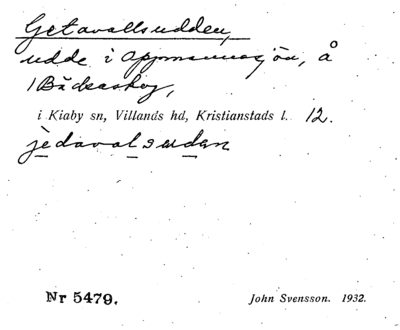 Getavallsudden,
udde i Oppmannasjön, å
i Kiaby sn, Villands hd, Kristianstads l. 12.
Nr 5479. John Svensson. 1932.